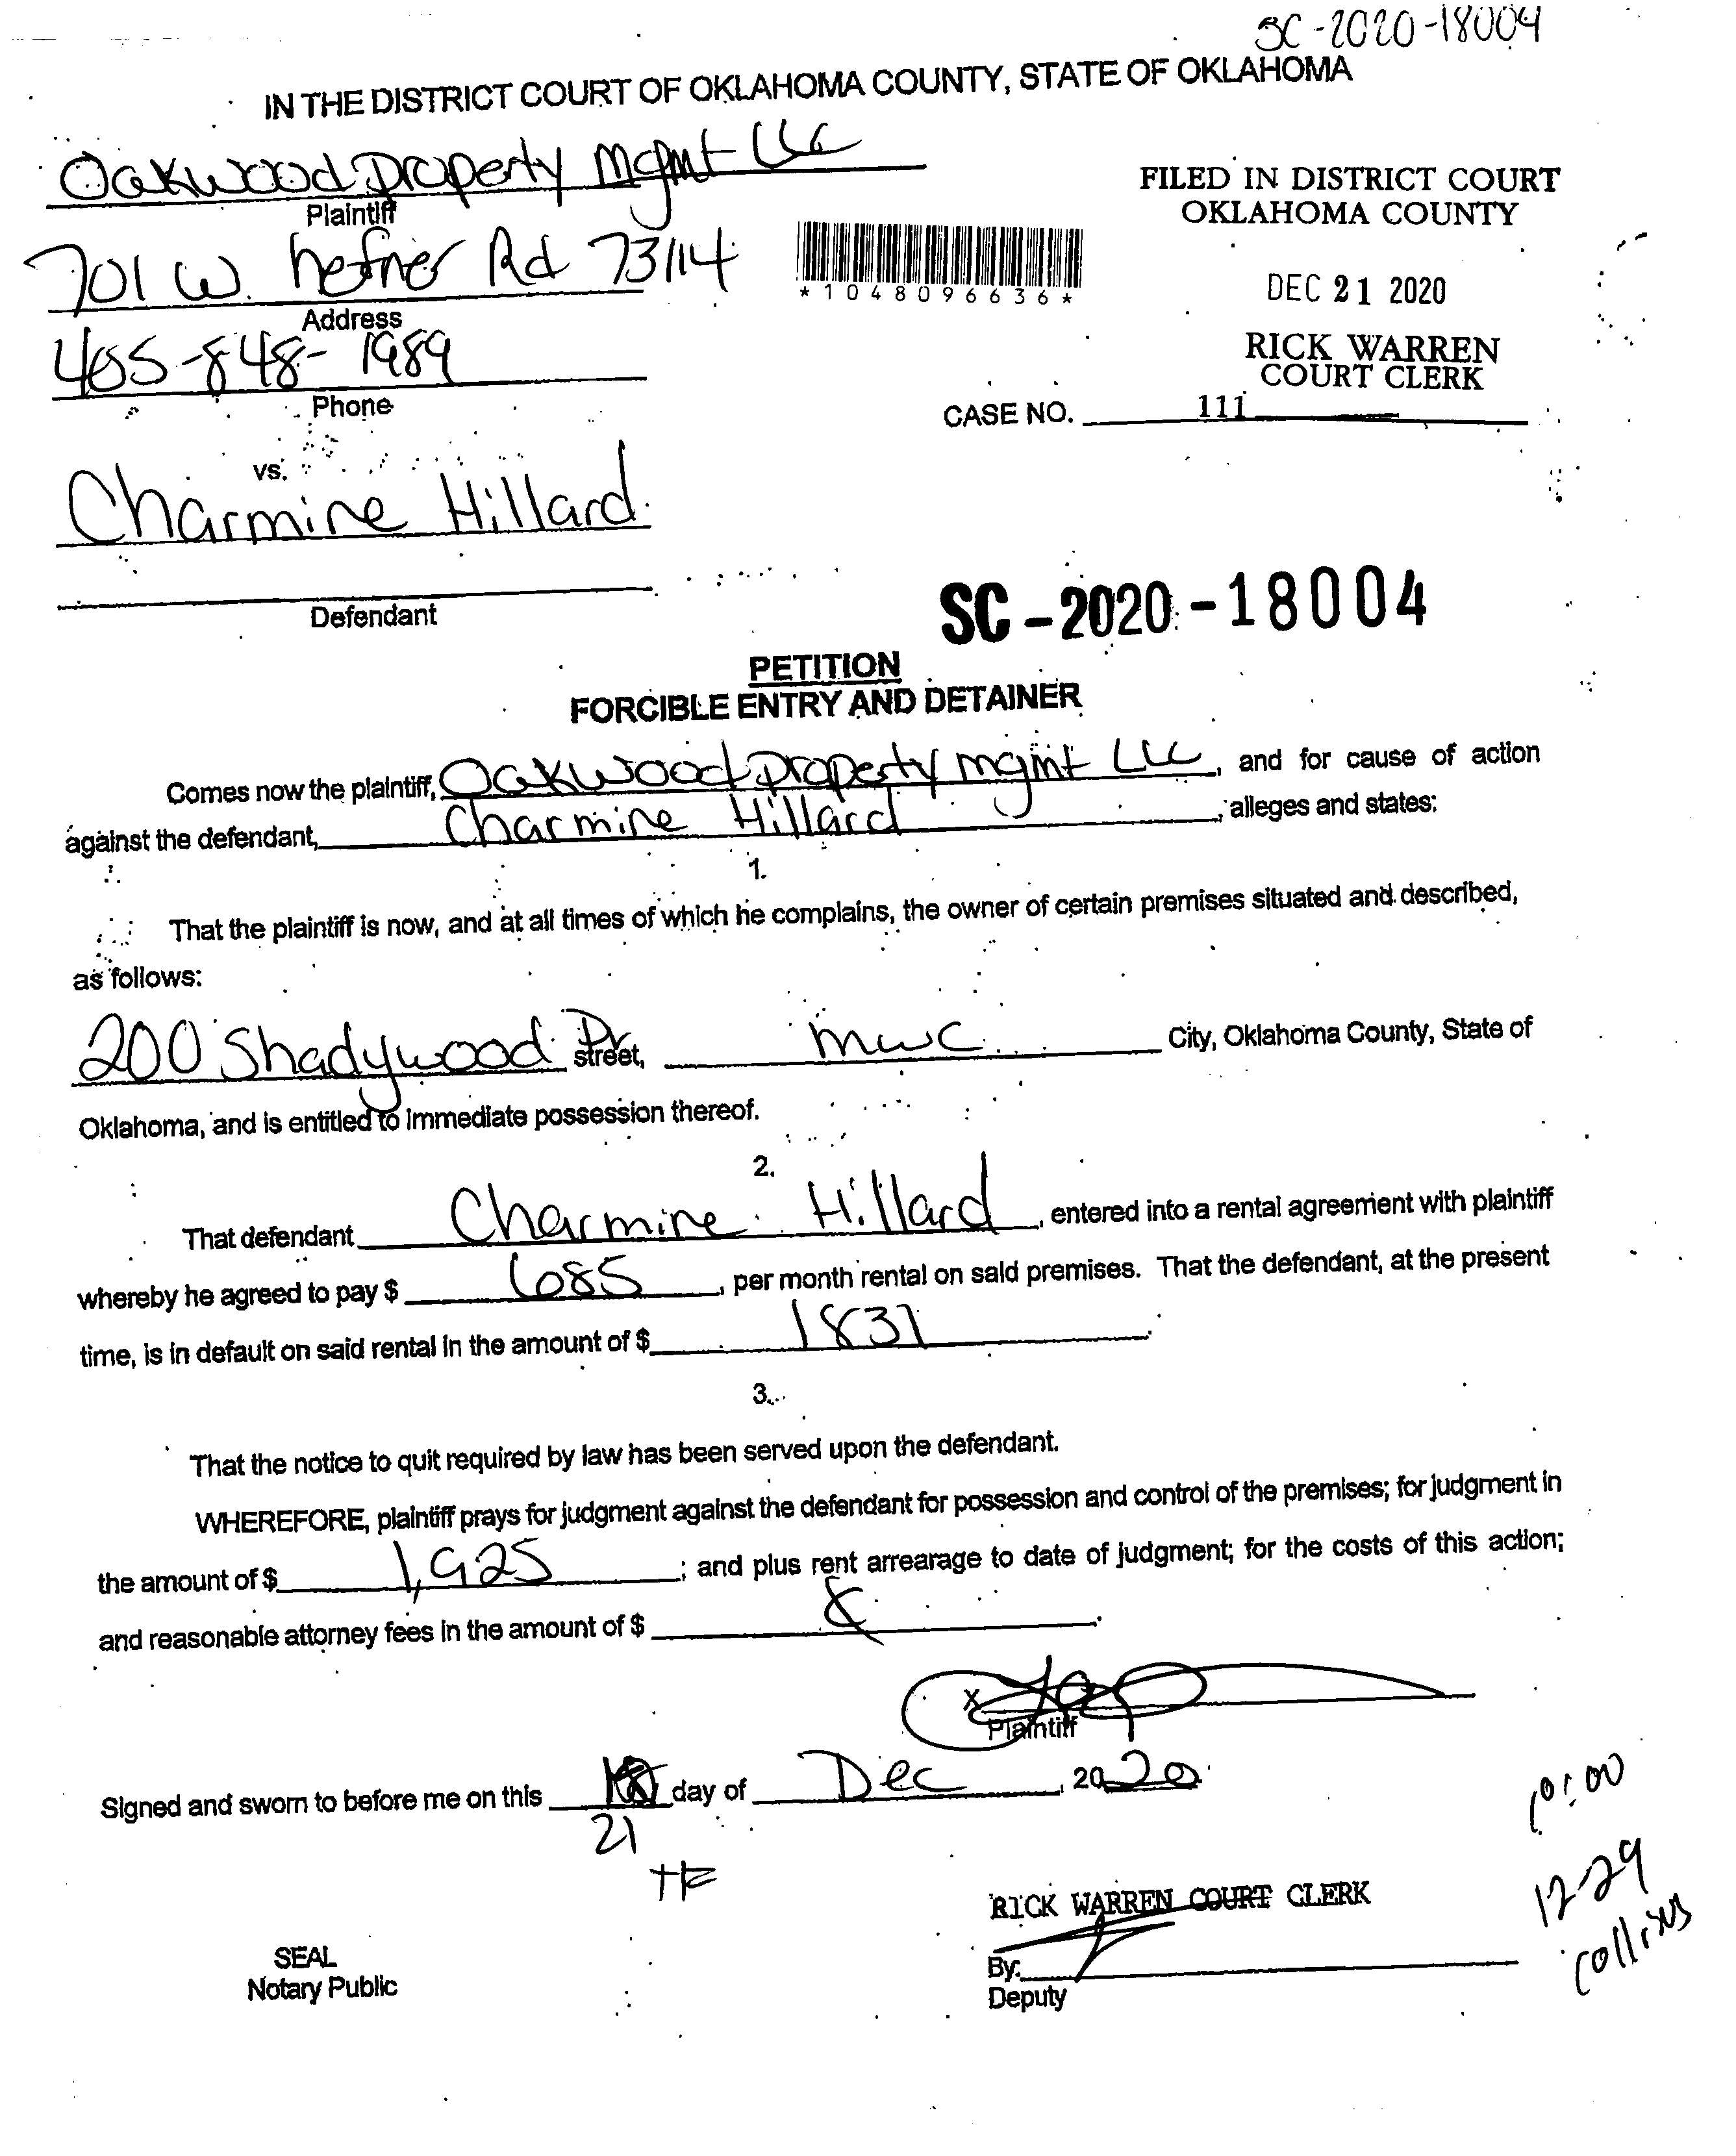 SC-2020-18004
IN THE DISTRICT COURT OF OKLAHOMA COUNTY, STATE OF OKLAHOMA
Oakwood Property Mgmt LLC
Plaintiff
FILED IN DISTRICT COURT
OKLAHOMA COUNTY
701 W. hefner Rd 73114
Address
*1048096636*
DEC 21 2020
405-848-1989
Phone
RICK WARREN
COURT CLERK
CASE NO. 111
vs.
Charmine Hillard
Defendant
SC-2020-18004
PETITION
FORCIBLE ENTRY AND DETAINER
Comes now the plaintiff, Oakwood Property mgmt LLC, and for cause of action
against the defendant, Charmine Hillard, alleges and states:
1.
That the plaintiff is now, and at all times of which he complains, the owner of certain premises situated and described,
as follows:
200 Shadywood Dr street, mwc City, Oklahoma County, State of
Oklahoma, and is entitled to immediate possession thereof.
2.
That defendant Charmine Hillard, entered into a rental agreement with plaintiff
whereby he agreed to pay $ 685, per month rental on said premises. That the defendant, at the present
time, is in default on said rental in the amount of $ 1837.
3.
That the notice to quit required by law has been served upon the defendant.
WHEREFORE, plaintiff prays for judgment against the defendant for possession and control of the premises; for judgment in
the amount of $ 1,925; and plus rent arrearage to date of judgment; for the costs of this action;
and reasonable attorney fees in the amount of $
X
Plaintiff
Signed and sworn to before me on this day of Dec, 2020
21
10:00
12-29
collins
RICK WARREN COURT CLERK
SEAL
Notary Public
By:
Deputy